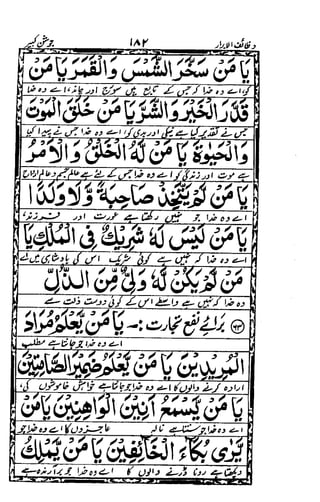 وظائف الابرار ۱۸۲ جوشن کبیر
يَا مَنْ سَخَّرَ الشَّمْسَ وَالْقَمَرَ يَا مَنْ
کو، اے وہ خدا کہ جس کے تابع ہیں سورج اور چاند، اے وہ خدا
قَدَّرَ الْخَيْرَ وَالشَّرَّ يَا مَنْ خَلَقَ الْمَوْتَ
جس نے تقدیر کیا ہے نیکی اور بدی کو، اے وہ خدا جس نے پیدا کیا
وَالْحَيٰوةَ يَا مَنْ لَهُ الْخَلْقُ وَالْاَمْرُ
ہے موت اور زندگی کو اے وہ خدا جس کے لئے ہے عالم جسم و عالم ارواح
يَا مَنْ لَمْ يَتَّخِذْ صَاحِبَةً وَّلَا وَلَدًا
اے وہ خدا جو نہیں رکھتا ہے عورت اور فرزند،
يَا مَنْ لَيْسَ لَهُ شَرِيْكٌ فِي الْمُلْكِ يَا
اے وہ خدا کہ نہیں ہے کوئی شریک اس کی بادشاہی میں اے
مَنْ لَمْ يَكُنْ لَهُ وَلِيٌّ مِنَ الذُّلِّ
وہ خدا کہ نہیں ہے واسطے اس کے کوئی دوست ذلت سے
۷۳ برائے نفع تجارت :- يَا مَنْ يَعْلَمُ مُرَادَ
اے وہ خدا جو جانتا ہے مطلب
الْمُرِيْدِيْنَ يَا مَنْ يَعْلَمُ ضَمِيْرَ الصَّامِتِيْنَ
ارادہ کرنے والوں کا اے وہ خدا جو جانتا ہے خواہش خاموشوں کی
يَا مَنْ يَسْمَعُ اَنِيْنَ الْوَاهِنِيْنَ يَا مَنْ
اے وہ خدا جو سنتا ہے نالہ عاجزوں کا اے وہ خدا جو
يَرٰى بُكَاءَ الْخَائِفِيْنَ يَا مَنْ يَمْلِكُ
دیکھتا ہے رونا ڈرنے والوں کا اے وہ خدا جو برآرندہ ہے